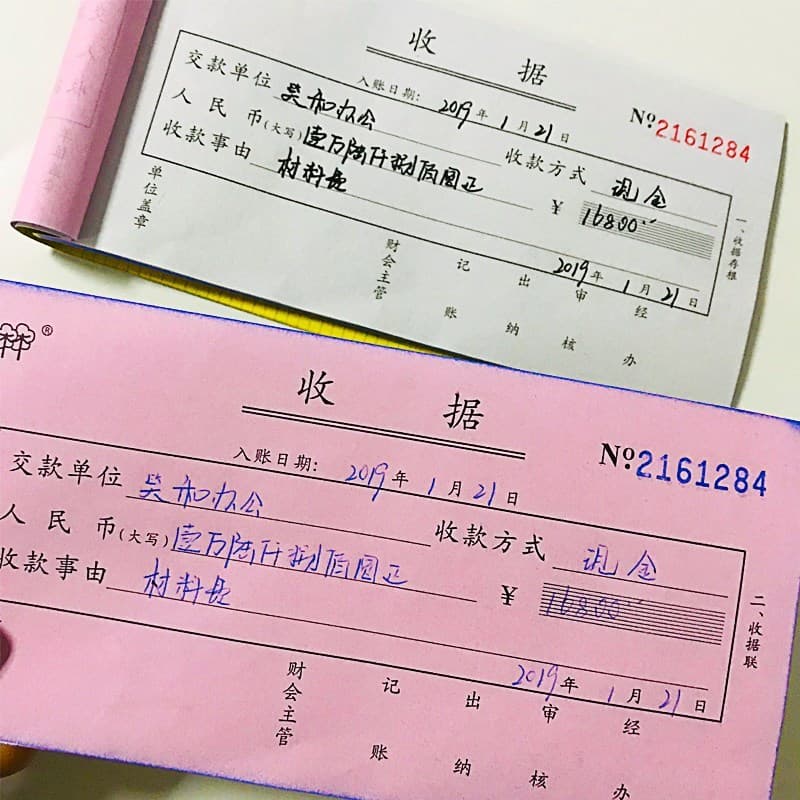 收据
入账日期: 2019年1月21日
No 2161284
交款单位 昊和办公
收款方式 现金
人民币(大写) 壹万陆仟捌佰圆正
¥ 16800
收款事由 材料
2019年1月21日
单位盖章
财会主管
记账
出纳
审核
经办
一、收据存根
®
收据
入账日期: 2019年1月21日
No 2161284
交款单位 昊和办公
收款方式 现金
人民币(大写) 壹万陆仟捌佰圆正
¥ 16800
收款事由 材料
2019年1月21日
财会主管
记账
出纳
审核
经办
二、收据联